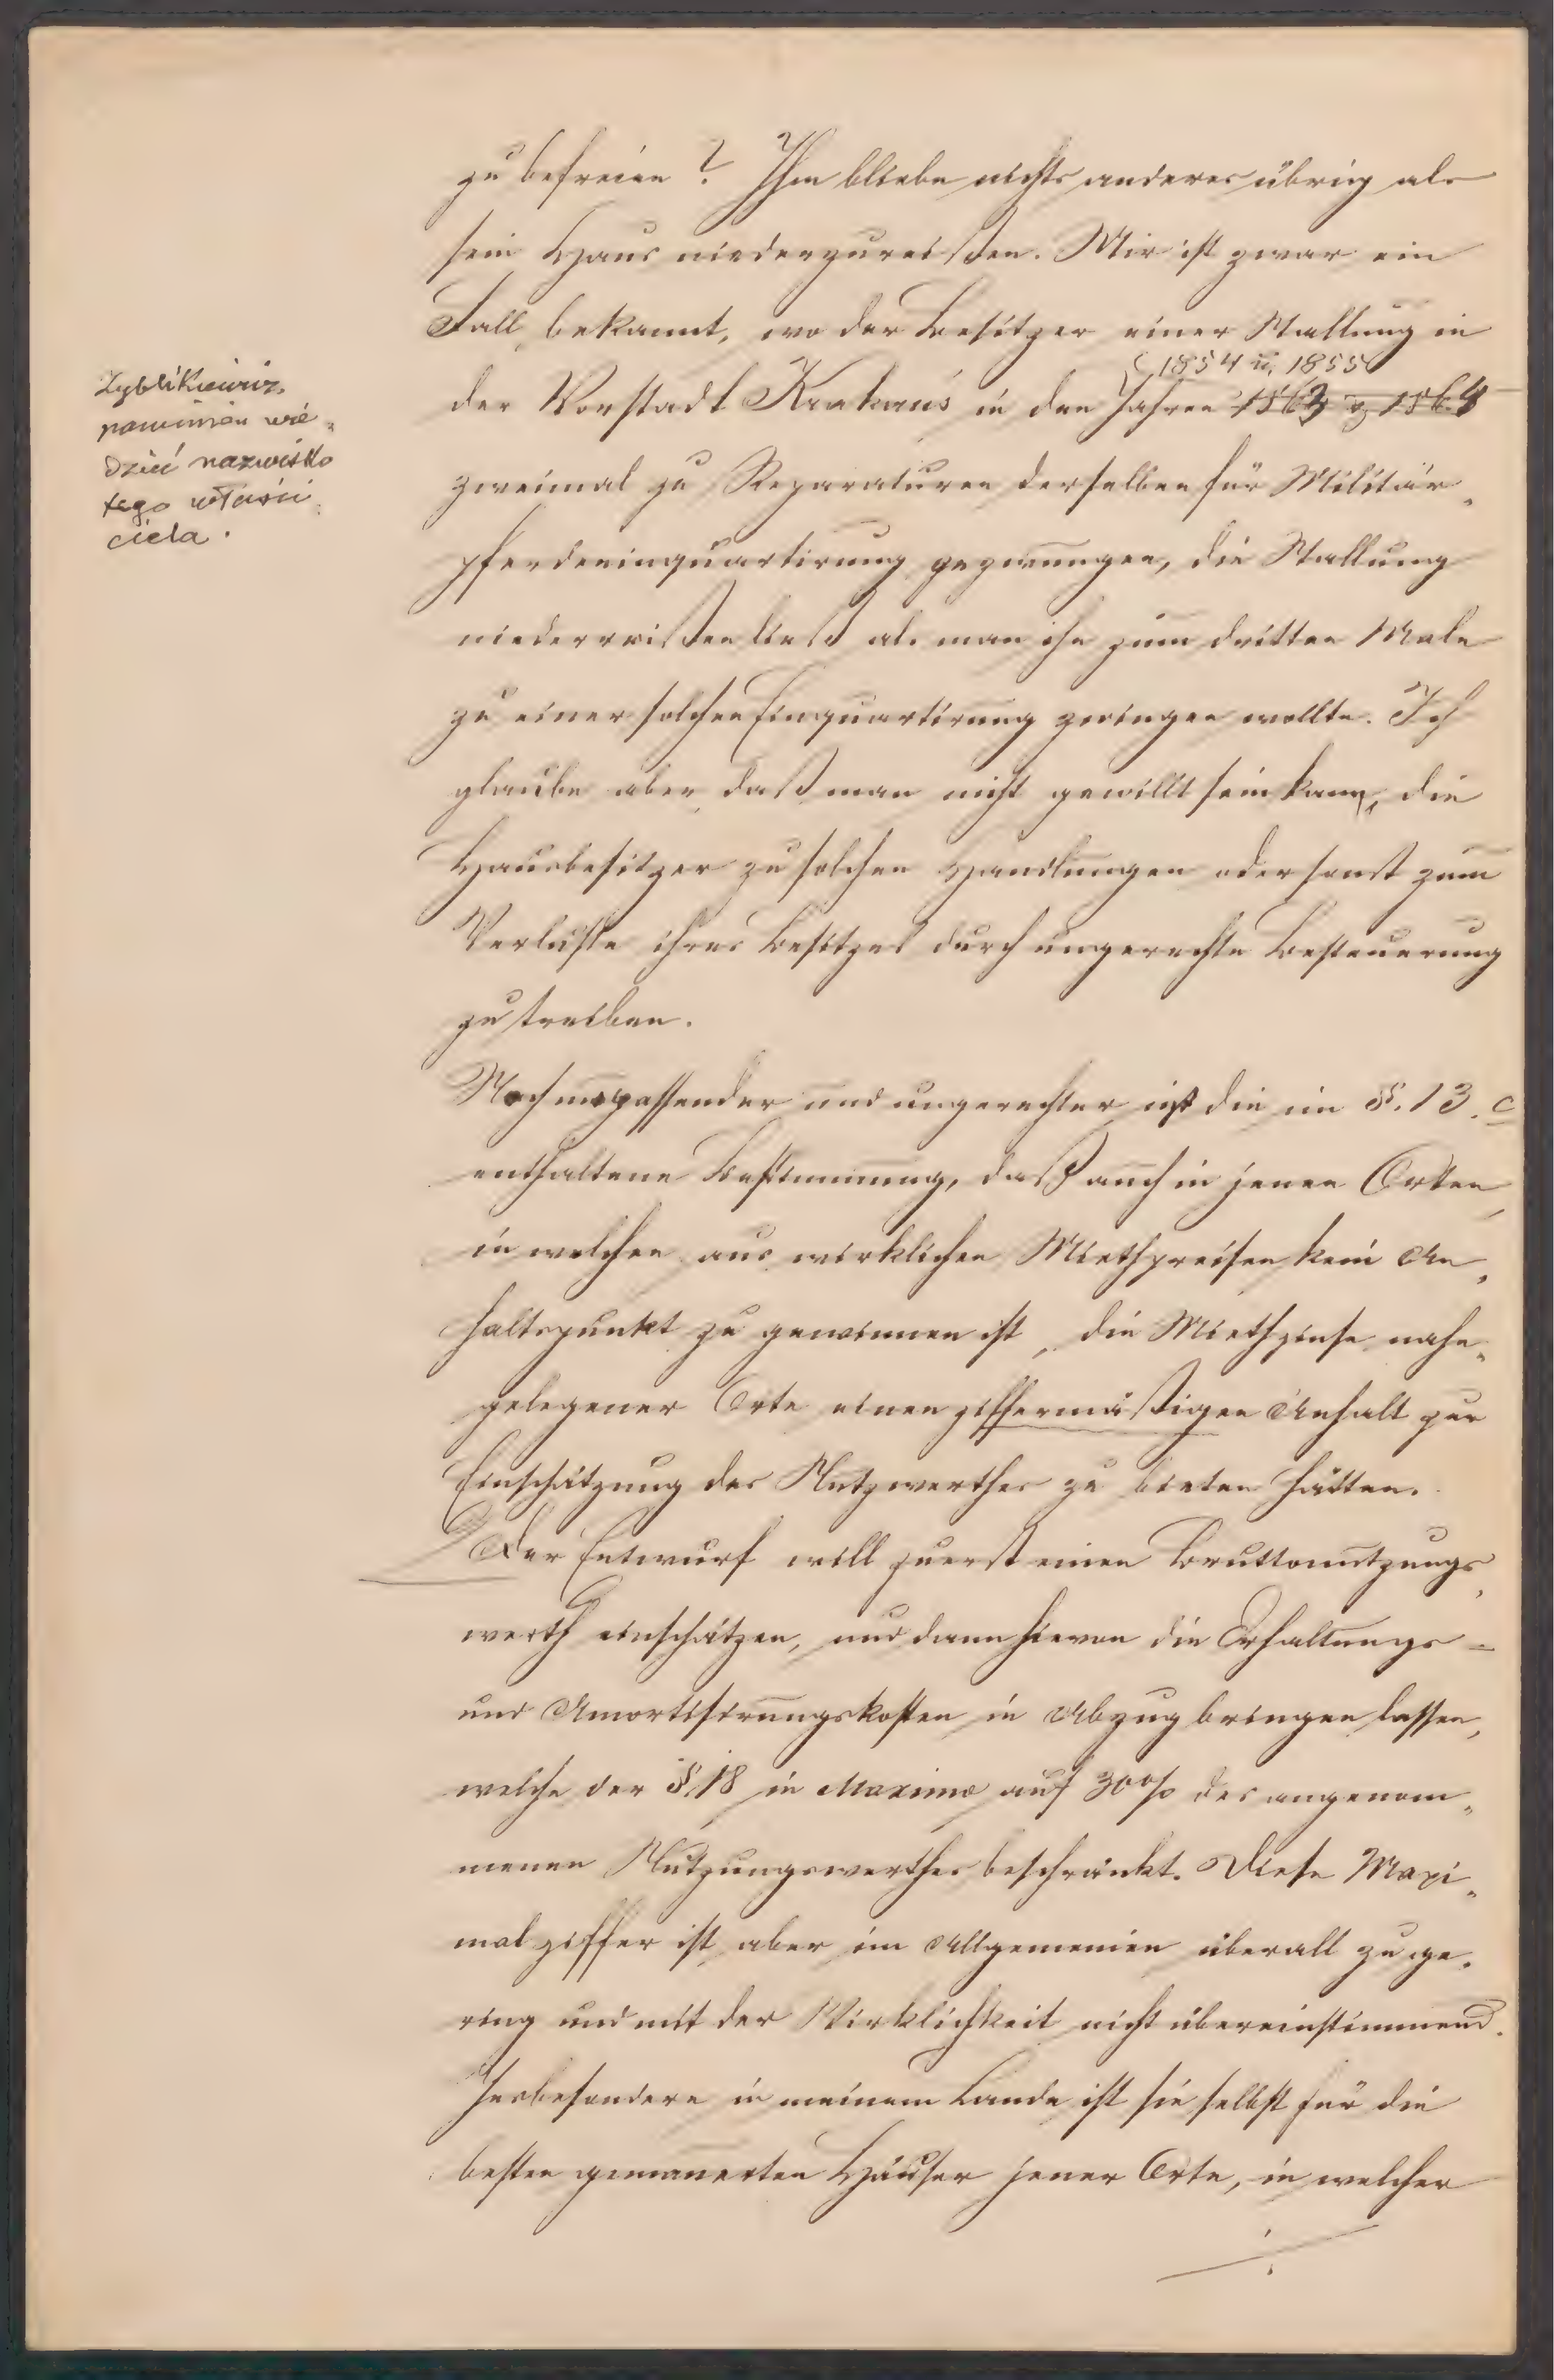 zu befreien? Ihm bliebe nichts anderes übrig als
sein Haus niederzureißen. Mir ist zwar ein
Fall bekannt, wo der Besitzer einer Stallung in
1854 u. 1855
der Vorstadt Krakau's in den Jahren 1863 & 1864
zweimal zu Reparaturen derselben für Militär„
pferdeeinquartirung gezwungen, die Stallung
niederreißen ließ als man ihn zum dritten Male
zu einer solchen Einquartirung zwingen wollte. Ich
glaube aber, daß man nicht gewillt sein kann, die
Hausbesitzer zu solchen Handlungen oder sonst zum
Verluste ihres Besitzes durch ungerechte Besteuerung
zu treiben.
Zyblikiewicz
powinien wie„
dzieć nazwisko
tego właści„
ciela.
Noch unpassender und ungerechter ist die im §. 13. c
enthaltene Bestimmung, daß auch in jenen Orten,
in welchen aus wirklichen Miethpreisen kein An„
haltspunkt zu gewinnen ist, die Miethzinse nahe„
gelegener Orte einen ziffermäßigen Anhalt zur
Einschätzung des Nutzwerthes zu bieten hätten.
Der Entwurf will zuerst einen Bruttonutzungs„
werth einschätzen, und dann hievon die Erhaltungs-
und Amortisirungskosten in Abzug bringen lassen,
welche der §. 18 in Maximo auf 30% des angenom„
menen Nutzungswerthes beschränkt. Diese Maxi„
malziffer ist aber im Allgemeinen überall zu ge„
ring und mit der Wirklichkeit nicht übereinstimmend.
Insbesondere in meinem Lande ist sie selbst für die
besten gemauerten Häuser jener Orte, in welcher
./.